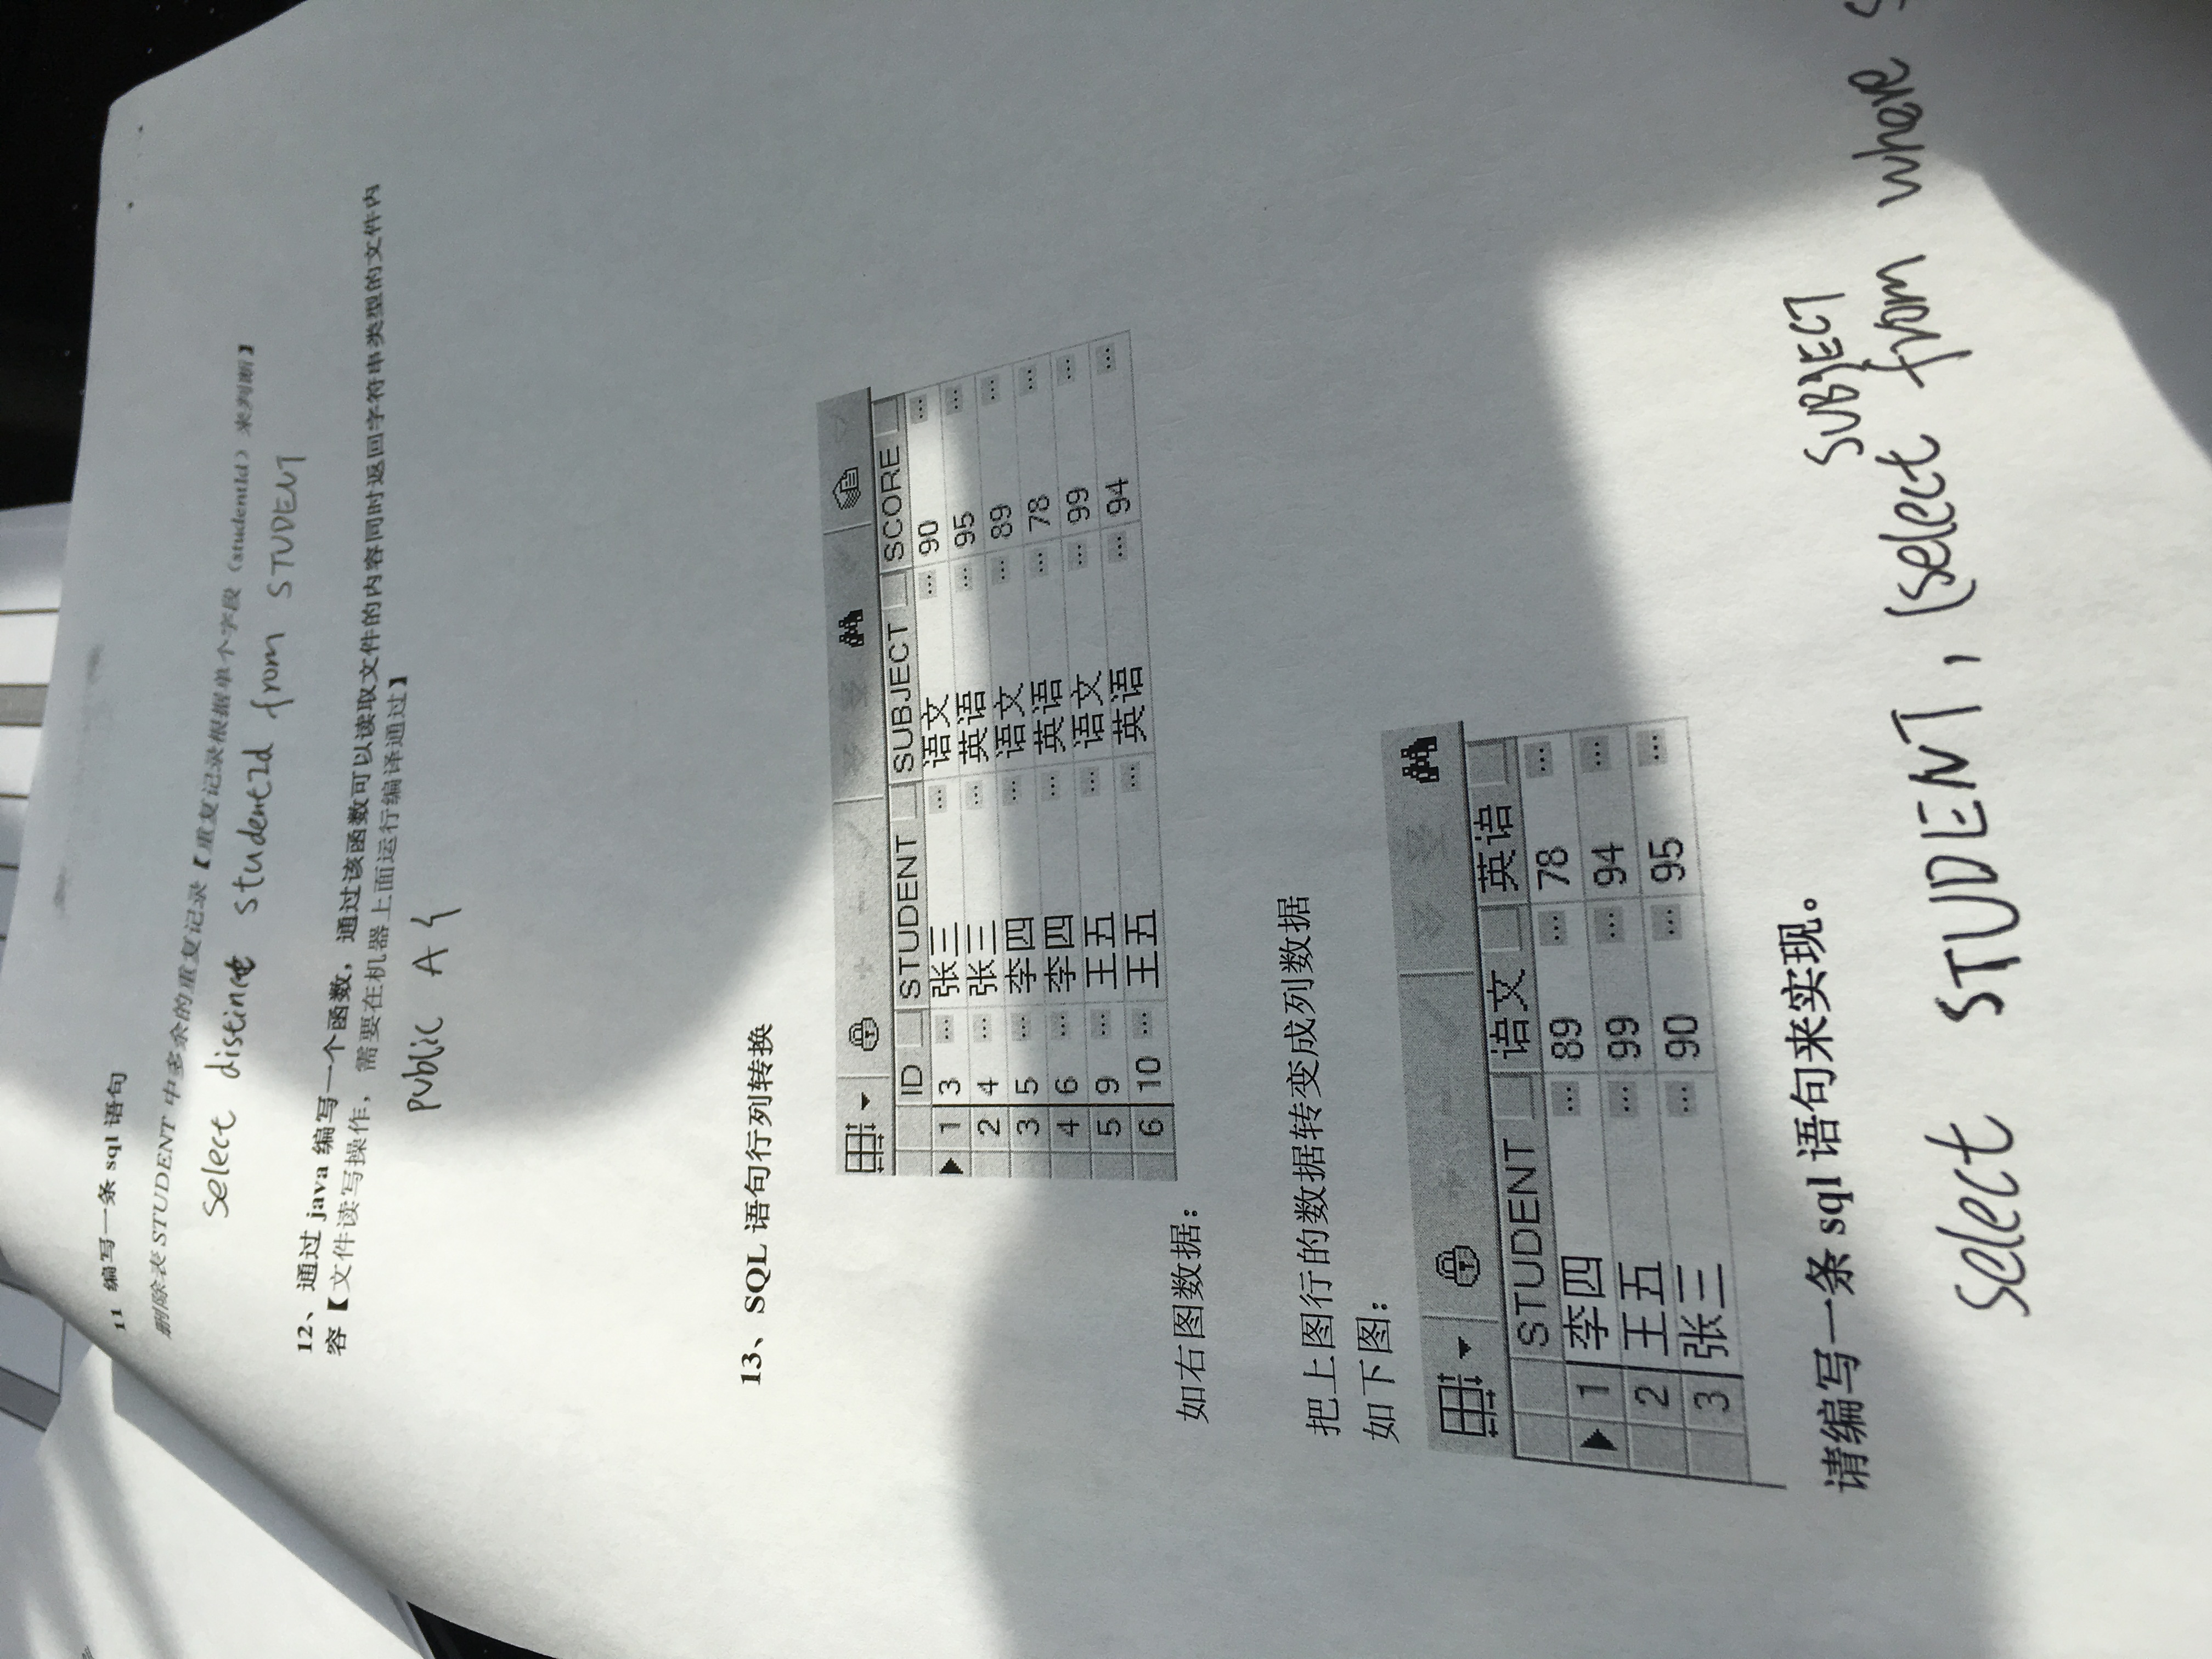 11 编写一条 sql 语句
删除表 STUDENT 中多余的重复记录【重复记录根据单个字段（studentId）来判断】
select distinct studentId from STUDENT
12、通过 java 编写一个函数，通过该函数可以读取文件的内容同时返回字符串类型的文件内
容【文件读写操作，需要在机器上面运行编译通过】
public A {
13、SQL 语句行列转换
ID STUDENT SUBJECT SCORE
1 3 ... 张三 ... 语文 ... 90 ...
2 4 ... 张三 ... 英语 ... 95 ...
3 5 ... 李四 ... 语文 ... 89 ...
4 6 ... 李四 ... 英语 ... 78 ...
5 9 ... 王五 ... 语文 ... 99 ...
6 10 ... 王五 ... 英语 ... 94 ...
如右图数据：
把上图行的数据转变成列数据
如下图：
STUDENT 语文 英语
1 李四 ... 89 ... 78 ...
2 王五 ... 99 ... 94 ...
3 张三 ... 90 ... 95 ...
请编写一条 sql 语句来实现。
SUBJECT
select STUDENT, (select from where